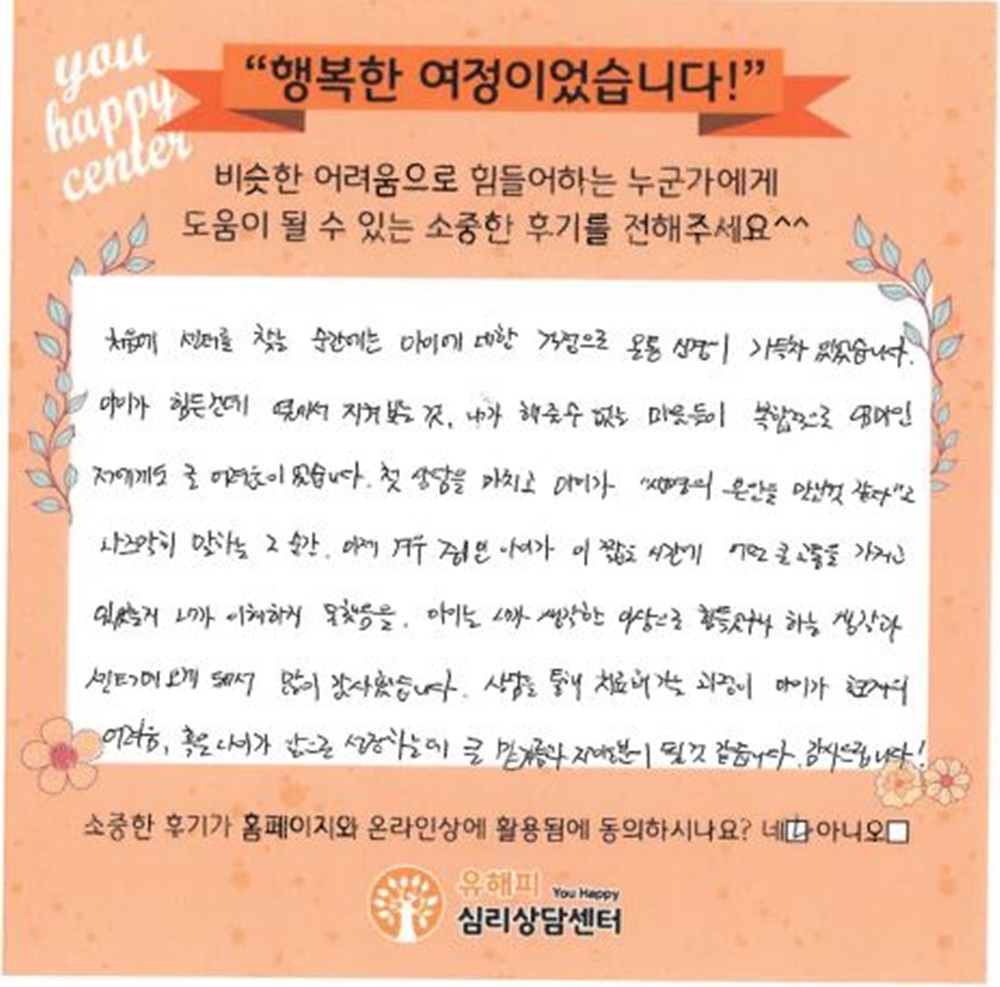 you
happy
center
“행복한 여정이었습니다!”
비슷한 어려움으로 힘들어하는 누군가에게
도움이 될 수 있는 소중한 후기를 전해주세요^^
처음에 센터를 찾는 순간에는 아이에 대한 걱정으로 온통 심장이 가득차 있었습니다.
아이가 힘든건데 옆에서 지켜보는 것, 내가 해줄수 없는 마음들이 복합적으로 엄마인
저에게도 큰 어려움이었습니다. 첫 상담을 마치고 아이가 "생명의 은인을 만난것 같다"고
나즈막히 말하는 그 순간, 이제 겨우 아이가 이 짧은 시간에 어떤 큰 고통을 가지고
있었는지 내가 이해하지 못했음을, 아이는 내가 생각한 이상으로 힘들었구나 하는 생각과
센터에 오게 돼서 많이 감사했습니다. 상담을 통해 치료해가는 과정이 아이가 현재의
어려움, 혹은 나아가 앞으로 성장하는데 큰 밑거름과 자양분이 될것 같습니다. 감사드립니다!
소중한 후기가 홈페이지와 온라인상에 활용됨에 동의하시나요? 네 아니오
유해피 You Happy
심리상담센터